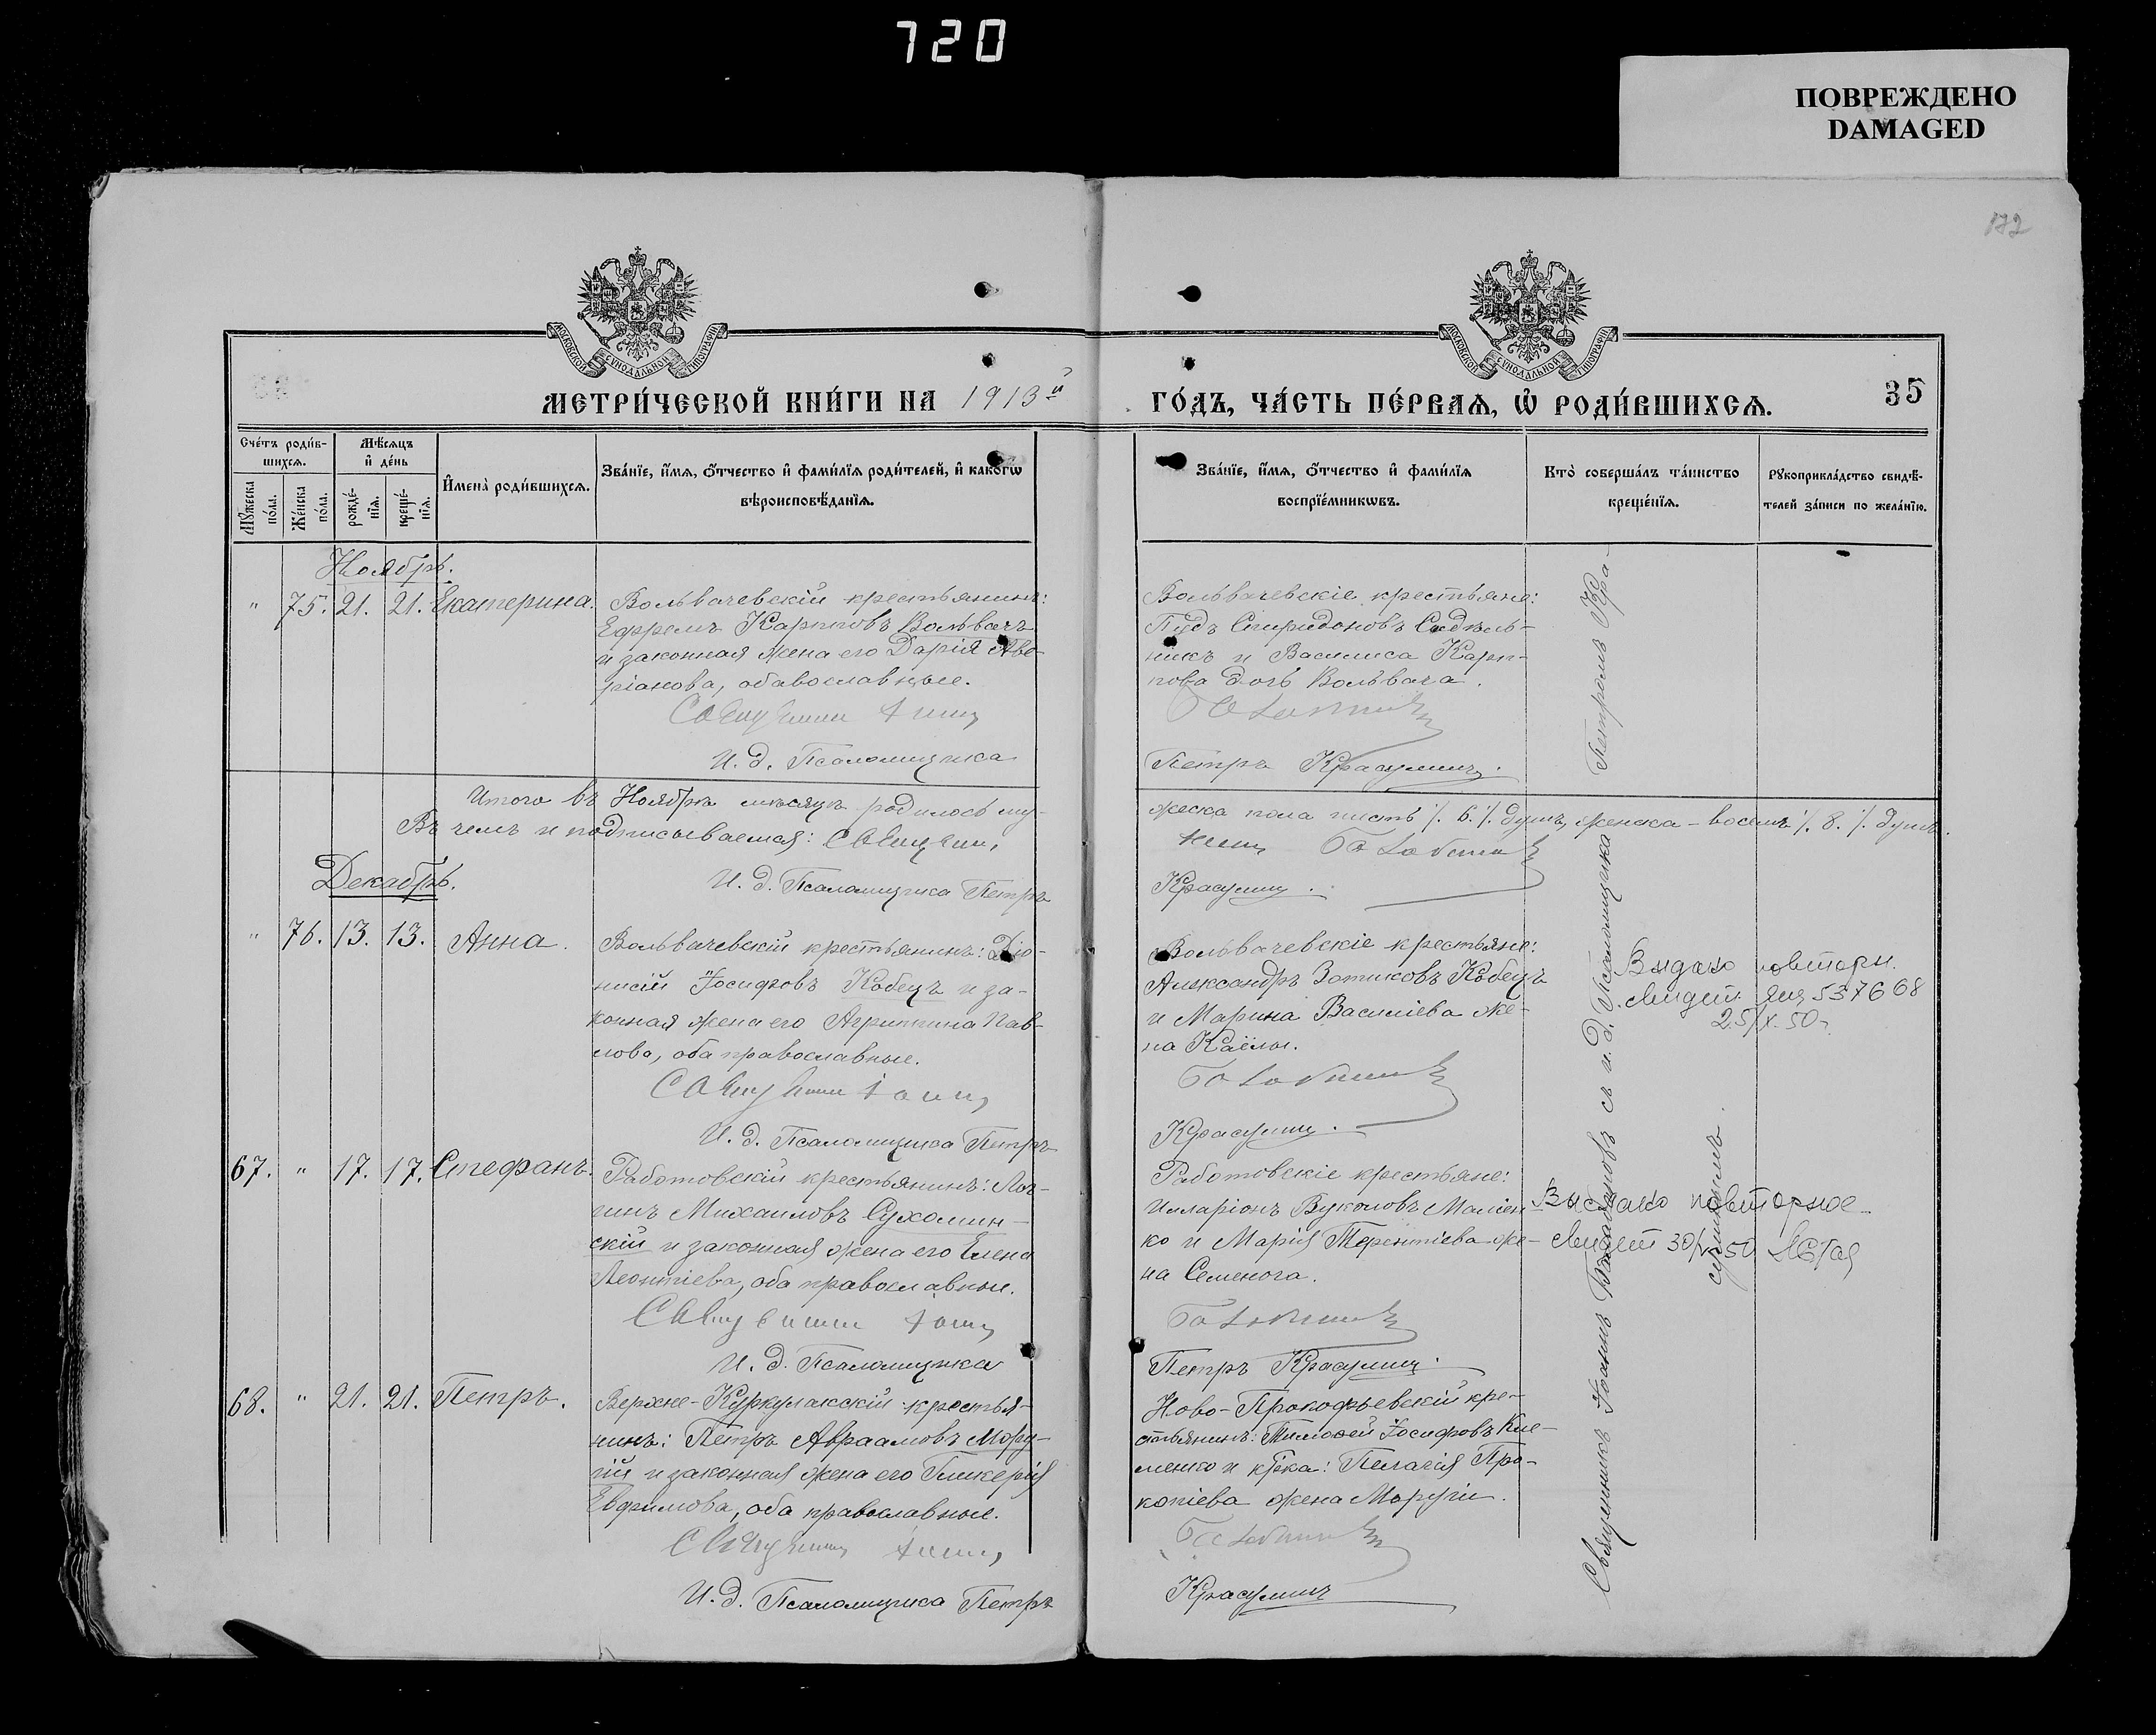 720
ПОВРЕЖДЕНО
DAMAGED
172
МОСКОВСКОЙ СУНОДАЛЬНОЙ ТИПОГРАФІИ
МОСКОВСКОЙ СУНОДАЛЬНОЙ ТИПОГРАФІИ
МЕТРИ́ЧЕСКОЙ КНИ́ГИ НА 1913й
ГО́ДЪ, ЧА́СТЬ ПЕ́РВАѦ, Ѡ РОДИ́ВШИХСѦ.
35
Сче́тъ роди́в-
шихсѧ.
Мѣ́сѧцъ
и де́нь
Мꙋжеска
по́ла.
Же́нска
по́ла.
рожде́-
нїѧ.
креще́-
нїѧ.
Имена̀ роди́вшихсѧ.
Зва́нїе, и́мѧ, ѻ́тчество и фами́лїѧ роди́телей, и како́гѡ
вѣроисповѣ́данїѧ.
Зва́нїе, и́мѧ, ѻ́тчество и фами́лїѧ
воспрїе́мникѡвъ.
Кто̀ соверша́лъ та́инство
креще́нїѧ.
Рꙋкоприкла́дство свидѣ́-
телей за́писи по жела́нїю.
Ноябрь.
" 75. 21. 21. Екатерина.
Вольвачевскій крестьянинъ:
Ефремъ Карповъ Вольвачъ
и законная жена его Дарія Аве-
ріанова, оба православные.
И. д. Псаломщика
Вольвачевскіе крестьяне:
Пудъ Спиридоновъ Садъль-
никъ и Василиса Кар-
пова дочь Вольвача.
Петръ Красулинъ.
Итого въ Ноябрѣ мѣсяцѣ родилось му-
жеска пола шесть /. 6. /. душъ, женска – восемь /. 8. /. душъ.
Въ чемъ и подписываемся: Священникъ
И. д. Псаломщика Петръ
Красулинъ.
Декабрь.
" 76. 13. 13. Анна.
Вольвачевскій крестьянинъ: Діо-
нисій Іосифовъ Кобецъ и за-
конная жена его Агриппина Пав-
лова, оба православные.
Священникъ Іоаннъ
И. д. Псаломщика Петръ
Вольвачевскіе крестьяне:
Александръ Зотиковъ Кобецъ
и Марина Василіева же-
на Каёлы.
Красулинъ.
Выдано повторн.
свидет. 537668
25/X.50г.
67. " 17. 17. Стефанъ.
Работовскій крестьянинъ: Лог-
гинъ Михаиловъ Сухомлин-
скій и законная жена его Елена
Леонтіева, оба православные.
Священникъ Іоаннъ
И. д. Псаломщика
Работовскіе крестьяне:
Илларіонъ Вуколовъ Маліен-
ко и Марія Терентіева же-
на Семенога.
Петръ Красулинъ.
Выдано повторное
свидет
68. " 21. 21. Петръ.
Верхне-Куркулакскій крестья-
нинъ: Петръ Авраамовъ Мору-
гій и законная жена его Гликерія
Евфимова, оба православные.
Священникъ Іоаннъ
И. д. Псаломщика Петръ
Ново-Прокофьевскій кре-
стьянинъ: Тимоѳей Іосифовъ Кле-
менко и кр-ка: Пелагія Про-
копіева жена Моругіи.
Красулинъ
Священникъ Іоаннъ съ и. д. Псаломщика Петромъ Кра-
сулинымъ.